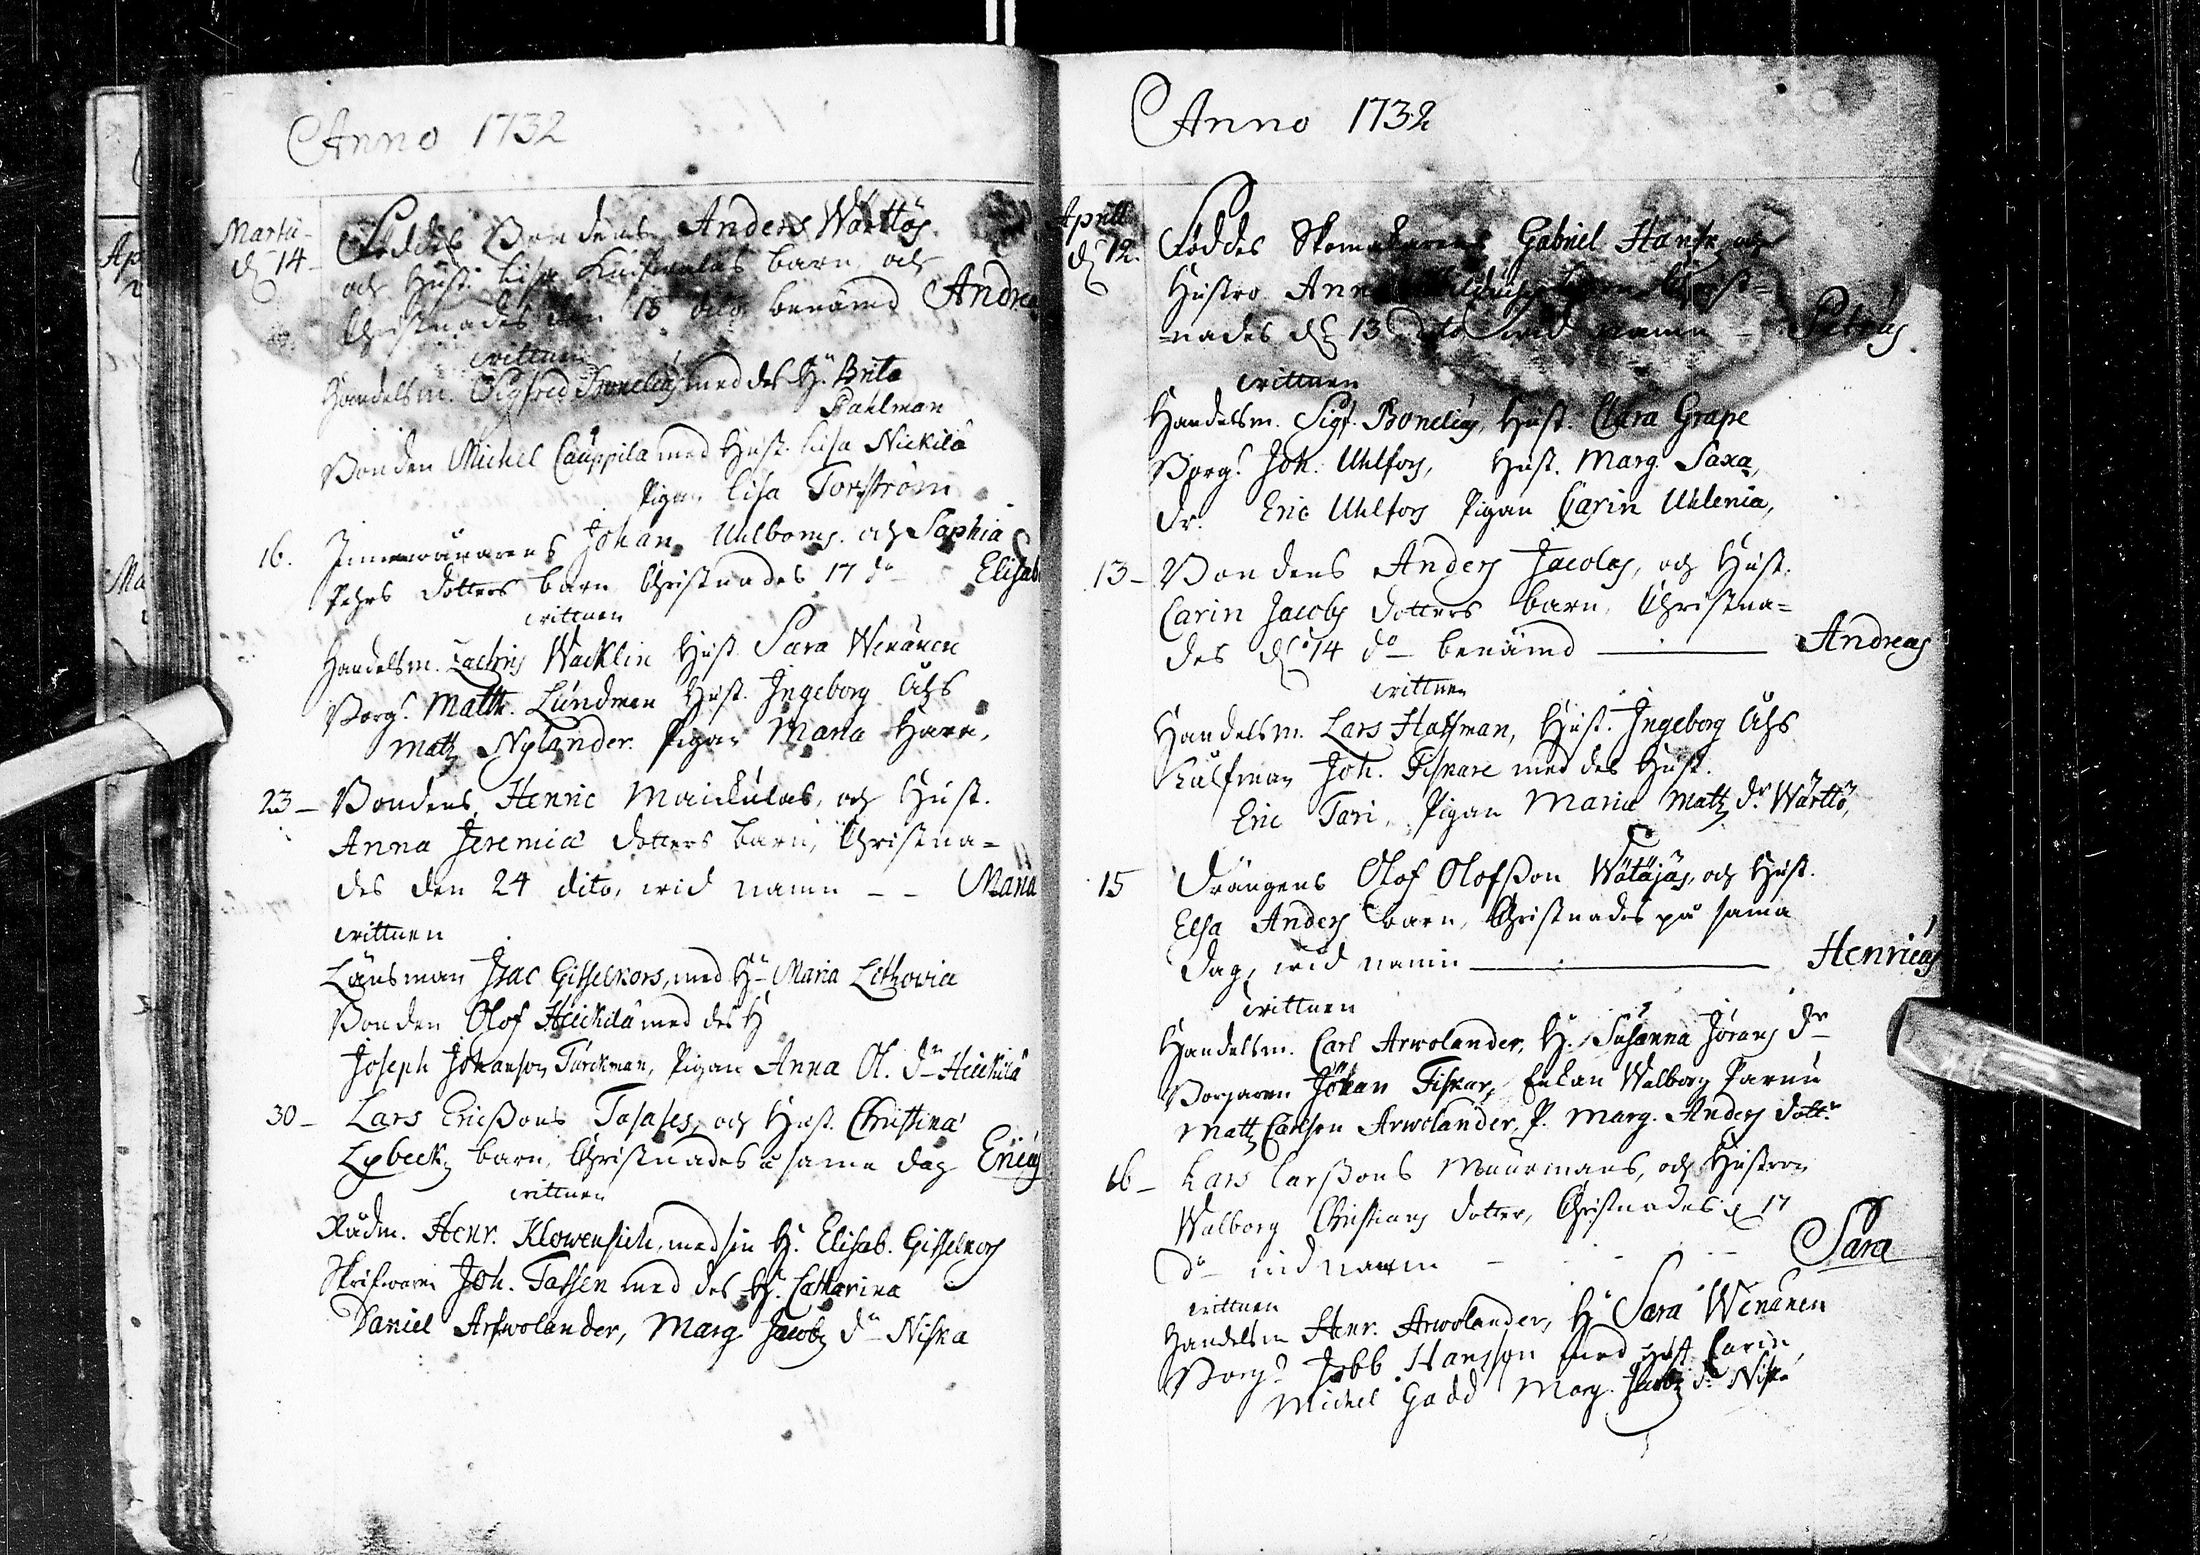 Anno 1732
Martii
d. 14
Föddes Bondens Anders Wärttös
och Hust. Lisa barn och
Christnades den 15 dag benämd Andrea
wittnen
Handelsm. Sigfred Bonelius med des H. Brita
Pahlman
Bonden Michel Cauppila med Hust. Lisa Nickilä
Pigan Lisa Torström
16. Innewånarens Johan Uhlboms och Sophia
Pehrs dotters barn Christnades 17 do Elisab
wittnen
Handelsm. Zachris Wacklin Hust. Sara Wenänen
Borg. Matth. Lundman Hust. Ingeborg Ahs
Matz Nylander. Pigan Maria Harn.
23 Bondens Henric Maickulas, och Hust.
Anna Jeremiæ dotters barn, Christna=
des den 24 dito, wid namn - - Maria
wittnen
Länsman Isac Gisselkors, med H. Maria Lethovia
Bonden Olof Heickilä med des H
Joseph Johanson Turckman, Pigan Anna Ol. dr Heickilä
30 Lars Ericßons Tasases, och Hust. Christina
Lybeckz barn, Christnades å sama dag Ericus
wittnen
Rådm. Henr. Klowensich, med sin H. Elisab. Gisselkors
Skrifwaren Joh. Fassen med des H. Catharina
Daniel Arfwolander, Marg. Jacobz dr Niska
Anno 1732
Aprill
d. 12. Föddes Skomakarens Gabriel och
Hustro Anna barn Christ=
nades d. 13 dito wid namn - Petrus
wittnen
Handelsm. Sigf. Bonelius, Hust. Clara Grape
Borg. Joh. Uhlfors, Hust. Marg. Saxa,
Dr. Eric Uhlfors Pigan Carin Uhlenia,
13 - Bondens Anders Jacolas, och Hust.
Carin Jacobs dotters barn, Christna=
des d. 14 do benämd Andreas
wittnen
Handelsm. Lars Haffman, Hust. Ingeborg Ahs
Kåifman Joh. Fiskare med des Hust.
Eric Tari, Pigan Maria Matz dr Wärttö,
15 Drängens Olof Olofßon Wätäjäs, och Hust.
Elsa Anders barn, Christnades på sama
dag, wid namn Henricus
wittnen
Handelsm. Carl Arwolander, H. Susanna Jörans dr
Borgaren Johan Fiskar, Enkan Walborg Parnu
Matz Carlson Arwolander, P. Marg. Anders dottr
16 - Lars Larßons Muurmans, och Hustron
Walborg Christians dotter, Christnades d. 17
do wid namn - Sara
wittnen
Handelsm Henr. Arwolander, H. Sara Wenänen
Borg. Jobb Hansson med Hust. Carin,
Michel Gadd Marg. Jacobz dr Niska